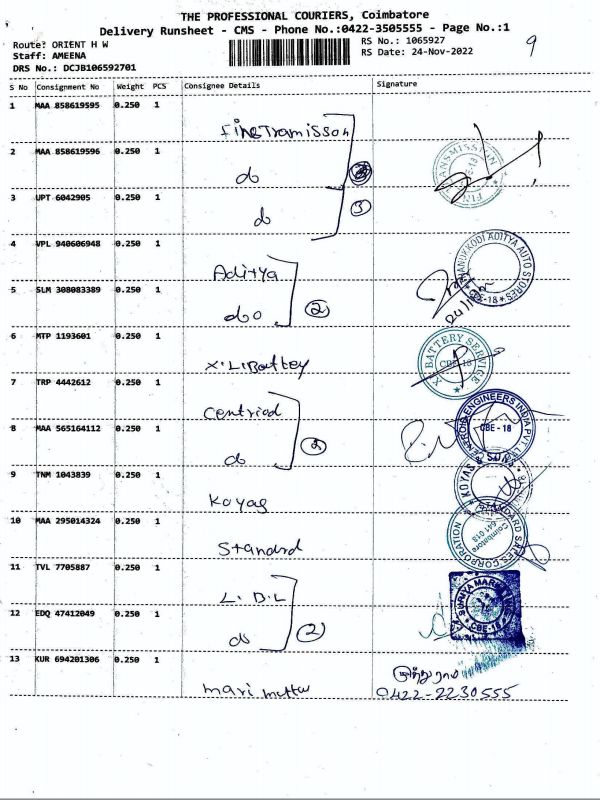 THE PROFESSIONAL COURIERS, Coimbatore
Delivery Runsheet - CMS - Phone No.:0422-3505555 - Page No.:1
Route: ORIENT H W
RS No.: 1065927
9
Staff: AMEENA
RS Date: 24-Nov-2022
DRS No.: DCJB106592701
S No Consignment No Weight PCS Consignee Details Signature
1 MAA 858619595 0.250 1
2 MAA 858619596 0.250 1 do
3 UPT 6042905 0.250 1 do 3
4 VPL 940606948 0.250 1 Aditya
5 SLM 308083389 0.250 1 do 2
6 MTP 1193601 0.250 1
BATTERY SERVICE
CBE-18
7 TRP 4442612 0.250 1
8 MAA 565164112 0.250 1 do 2
ENGINEERS INDIA PVT.
CBE - 18
9 TNM 1043839 0.250 1 Koyas
KOYAS & SONS
10 MAA 295014324 0.250 1 Standard
STANDARD SALES CORPORATION
Coimbatore
641 018
11 TVL 7705887 0.250 1 L.DL
12 EDQ 47412049 0.250 1 do 2
CBE-18
13 KUR 694201306 0.250 1 mari muttu
0422-2230555